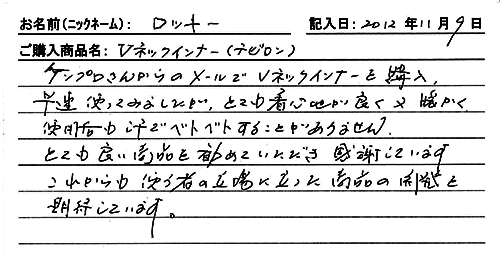 お名前(ニックネーム): ロッキー 記入日: 2012年11月9日
ご購入商品名: Vネックインナー(テビロン)
ケンプロさんからのメールでVネックインナーを購入、
早速使ってみましたが、とても着心地が良く又暖かく
使用后も汗でベトベトすることがありません。
とても良い商品を勧めていただき感謝しています
これからも使う者の立場に立った商品の開発を
期待しています。